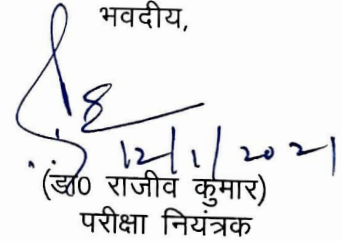 भवदीय,
12/1/2021
(डा0 राजीव कुमार)
परीक्षा नियंत्रक